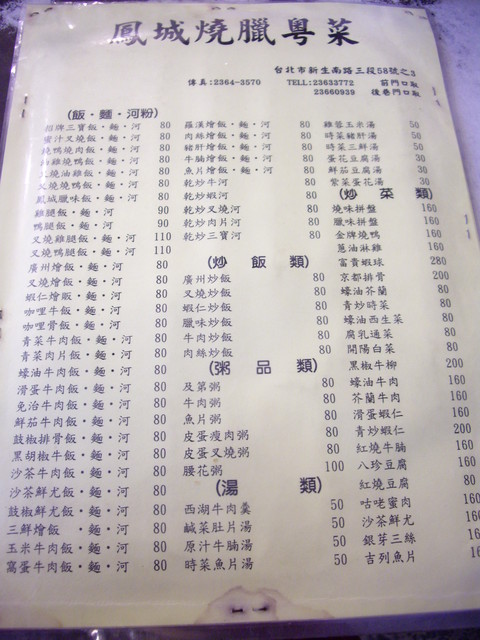 鳳城燒臘粵菜
台北市新生南路三段58號之3
傳真:2364-3570 TELL:23633772 前門口取
23660939 後巷門口取
(飯・麵・河粉)
招牌三寶飯・麵・河 80
蜜汁叉燒飯・麵・河 80
燒鴨燒肉飯・麵・河 80
油雞燒鴨飯・麵・河 80
叉燒油雞飯・麵・河 80
叉燒燒鴨飯・麵・河 80
鳳城臘味飯・麵・河 80
雞腿飯・麵・河 90
鴨腿飯・麵・河 90
叉燒雞腿飯・麵・河 110
叉燒鴨腿飯・麵・河 110
廣州燴飯・麵・河 80
叉燒燴飯・麵・河 80
蝦仁燴飯・麵・河 80
咖哩牛飯・麵・河 80
咖哩骨飯・麵・河 80
青菜牛肉飯・麵・河 80
青菜肉片飯・麵・河 80
蠔油牛肉飯・麵・河 80
滑蛋牛肉飯・麵・河 80
免治牛肉飯・麵・河 80
鮮茄牛肉飯・麵・河 80
鼓椒排骨飯・麵・河 80
黑胡椒牛飯・麵・河 80
沙茶牛肉飯・麵・河 80
沙茶鮮尤飯・麵・河 80
鼓椒鮮尤飯・麵・河 80
三鮮燴飯・麵・河 80
玉米牛肉飯・麵・河 80
窩蛋牛肉飯・麵・河 80
羅漢燴飯・麵・河 80
肉絲燴飯・麵・河 80
豬肝燴飯・麵・河 80
牛腩燴飯・麵・河 80
魚片燴飯・麵・河 80
乾炒牛河 80
乾炒蝦河 80
乾炒叉燒河 80
乾炒肉片河 80
乾炒三寶河 80
(炒飯類)
廣州炒飯 80
叉燒炒飯 80
蝦仁炒飯 80
臘味炒飯 80
牛肉炒飯 80
肉絲炒飯 80
(粥品類)
及第粥 80
牛肉粥 80
魚片粥 80
皮蛋瘦肉粥 80
皮蛋叉燒粥 80
腰花粥 100
(湯類)
西湖牛肉羹 50
鹹菜肚片湯 50
原汁牛腩湯 50
時菜魚片湯 50
雞蓉玉米湯 50
時菜豬肝湯 50
時菜三鮮湯 50
蛋花豆腐湯 30
鮮茄豆腐湯 30
紫菜蛋花湯 30
(炒菜類)
燒味拼盤 160
臘味拼盤 160
金牌燒鴨 160
蔥油淋雞 160
富貴蝦球 280
京都排骨 200
蠔油芥蘭 80
青炒時菜 80
蠔油西生菜 80
腐乳通菜 80
開陽白菜 80
黑椒牛柳 200
蠔油牛肉 160
芥蘭牛肉 160
滑蛋蝦仁 160
青炒蝦仁 200
紅燒牛腩 160
八珍豆腐 160
紅燒豆腐 80
咕咾蜜肉 160
沙茶鮮尤 160
銀芽三絲
吉列魚片